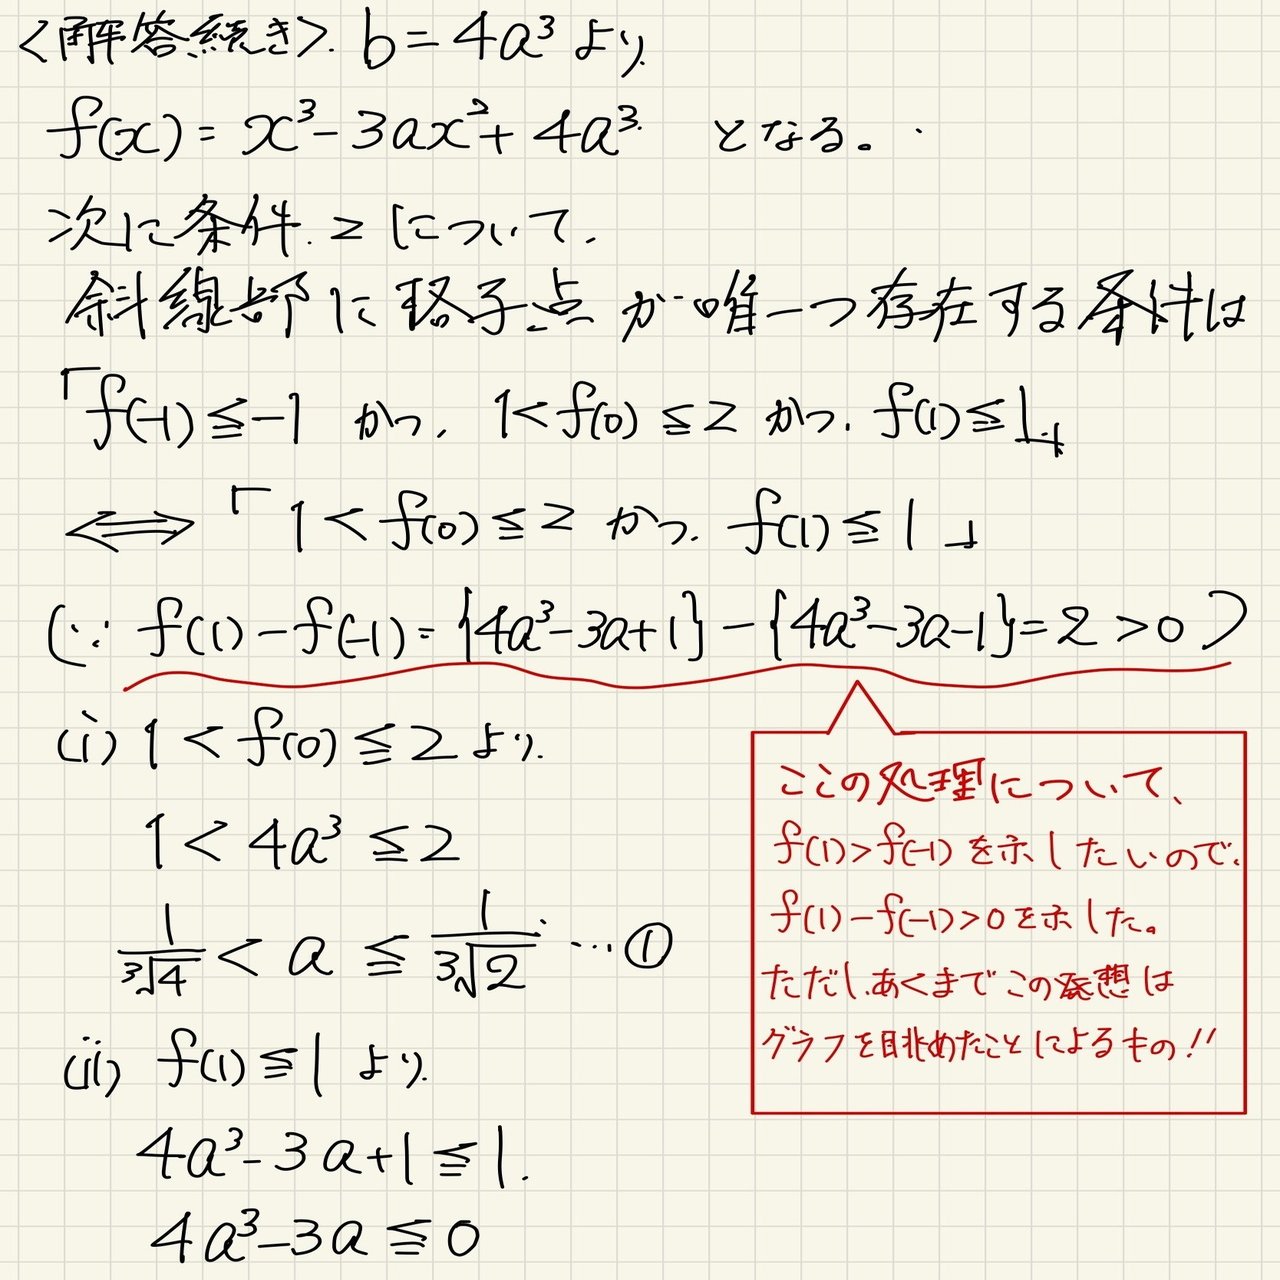 <解答続き>. b=4a³より
f(x)=x³-3ax²+4a³ となる。
次に条件2について.
斜線部に格子点が唯一つ存在する条件は
「f(-1)≦-1 かつ. 1<f(0)≦2 かつ. f(1)≦1」
⟺「1<f(0)≦2 かつ. f(1)≦1」
(∵ f(1)-f(-1)={4a³-3a+1}-{4a³-3a-1}=2>0)
(i) 1<f(0)≦2より.
1<4a³≦2
1/³√4 < a ≦ 1/³√2 …①
(ii) f(1)≦1より.
4a³-3a+1≦1.
4a³-3a≦0
ここの処理について、
f(1)>f(-1)を示したいので、
f(1)-f(-1)>0を示した。
ただし、あくまでこの発想は
グラフを眺めたことによるもの!!